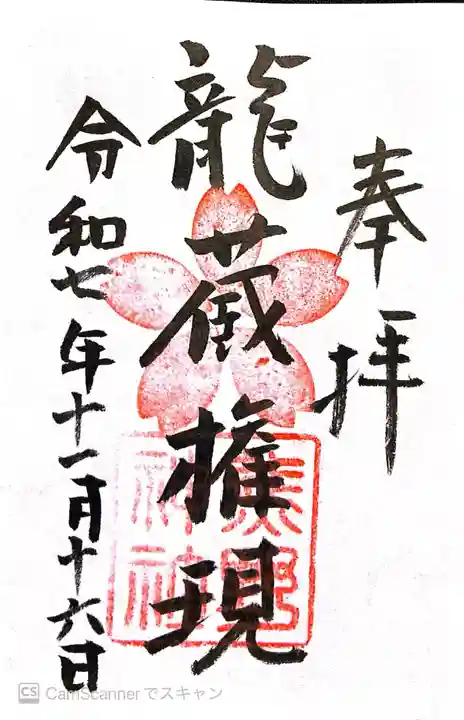 奉拝
龍蔵權現
令和七年十一月十六日
熊野
神社
CS CamScannerでスキャン